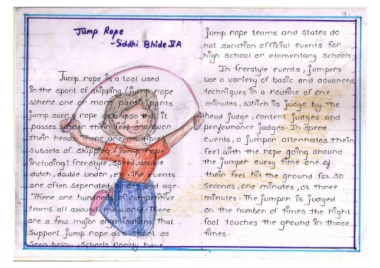 Jump Rope
- Siddhi Bhide V A
Jump rope is a tool used
in the sport of skipping / jump rope
where one or more participants
jump over a rope swung so it
passes under their feet and over
their heads. There are multiple
subsets of skipping / jump rope
including: freestyle, speed, double
dutch, double under, etc. The events
are often seperated by and age.
There are hundreds of competitive
teams all around the world. There
are a few major organisations that
support jump rope as a sport as
seen below. Schools rarely have
jump rope teams and states do
not sanction official events for
high school or elementary schools.
In freestyle events, jumpers
use a variety of basic and advanced
techniques in a routine of one
minutes, which is judge by the
head judge, content judges and
performance judges. In speed
events, a jumper alternates their
feet with the rope going around
the jumper every time one of
their feet hit the ground for 30
seconds, one minutes, or three
minutes. The jumper is judged
on the number of times the right
foot touches the ground in those
times.